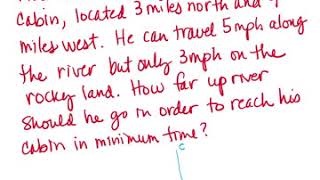 cabin, located 3 miles north and
miles west. He can travel 5mph along
the river but only 3mph on the
rocky land. How far up river
should he go in order to reach his
cabin in minimum time?
C